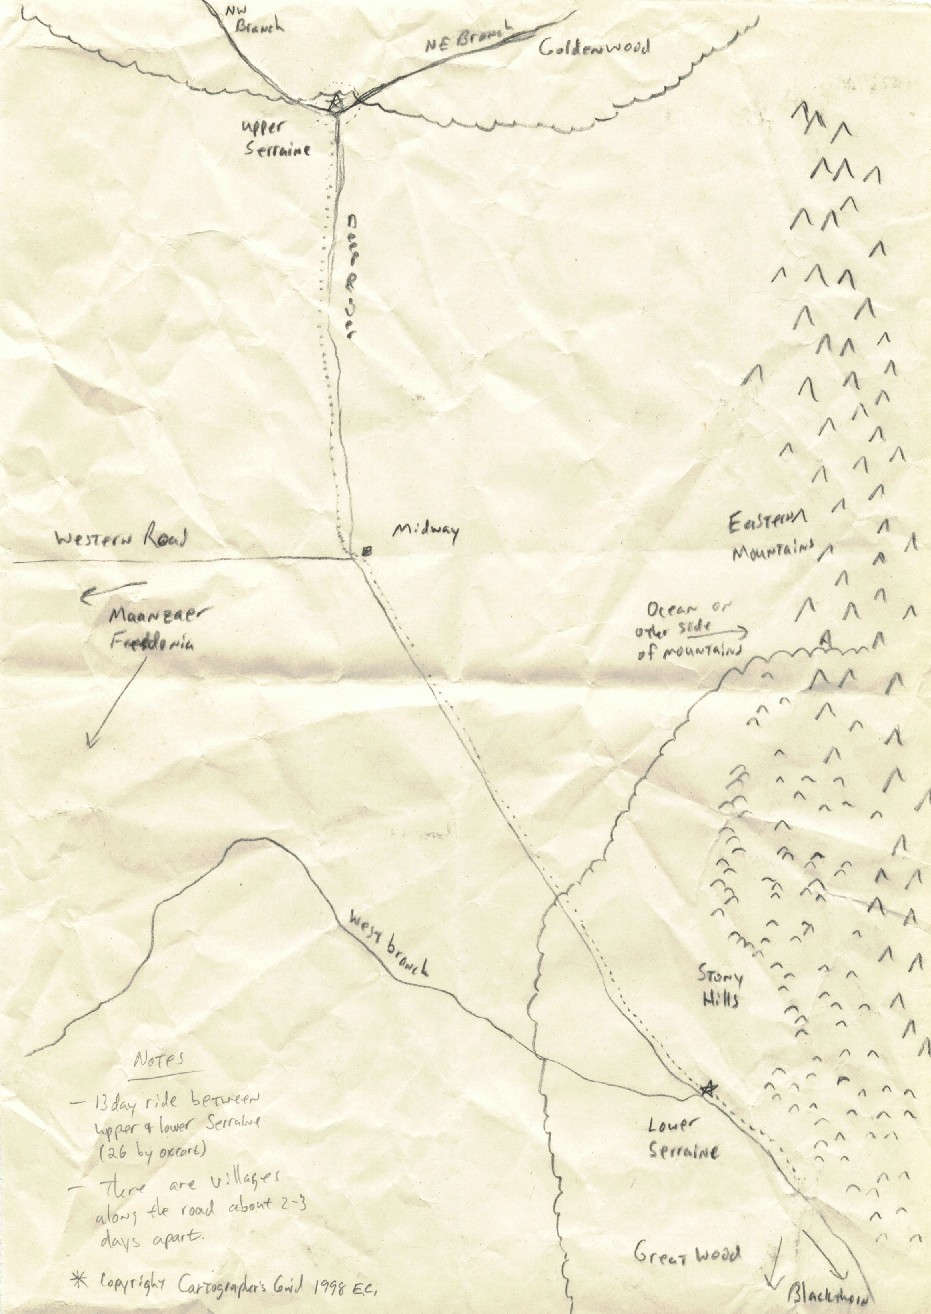 NW
Branch
NE Branch
Goldenwood
Upper
Serraine
Midway
Western Road
Maanzaer
Fredonia
Eastern
Mountains
Ocean on
other side
of mountains
West branch
Stony
Hills
Notes
- 13 day ride between
upper & lower Serraine
(26 by oxcart)
- There are villages
along the road about 2-3
days apart.
* Copyright Cartographer's Guild 1998 EC.
Lower
Serraine
Great Wood
Blackthorn